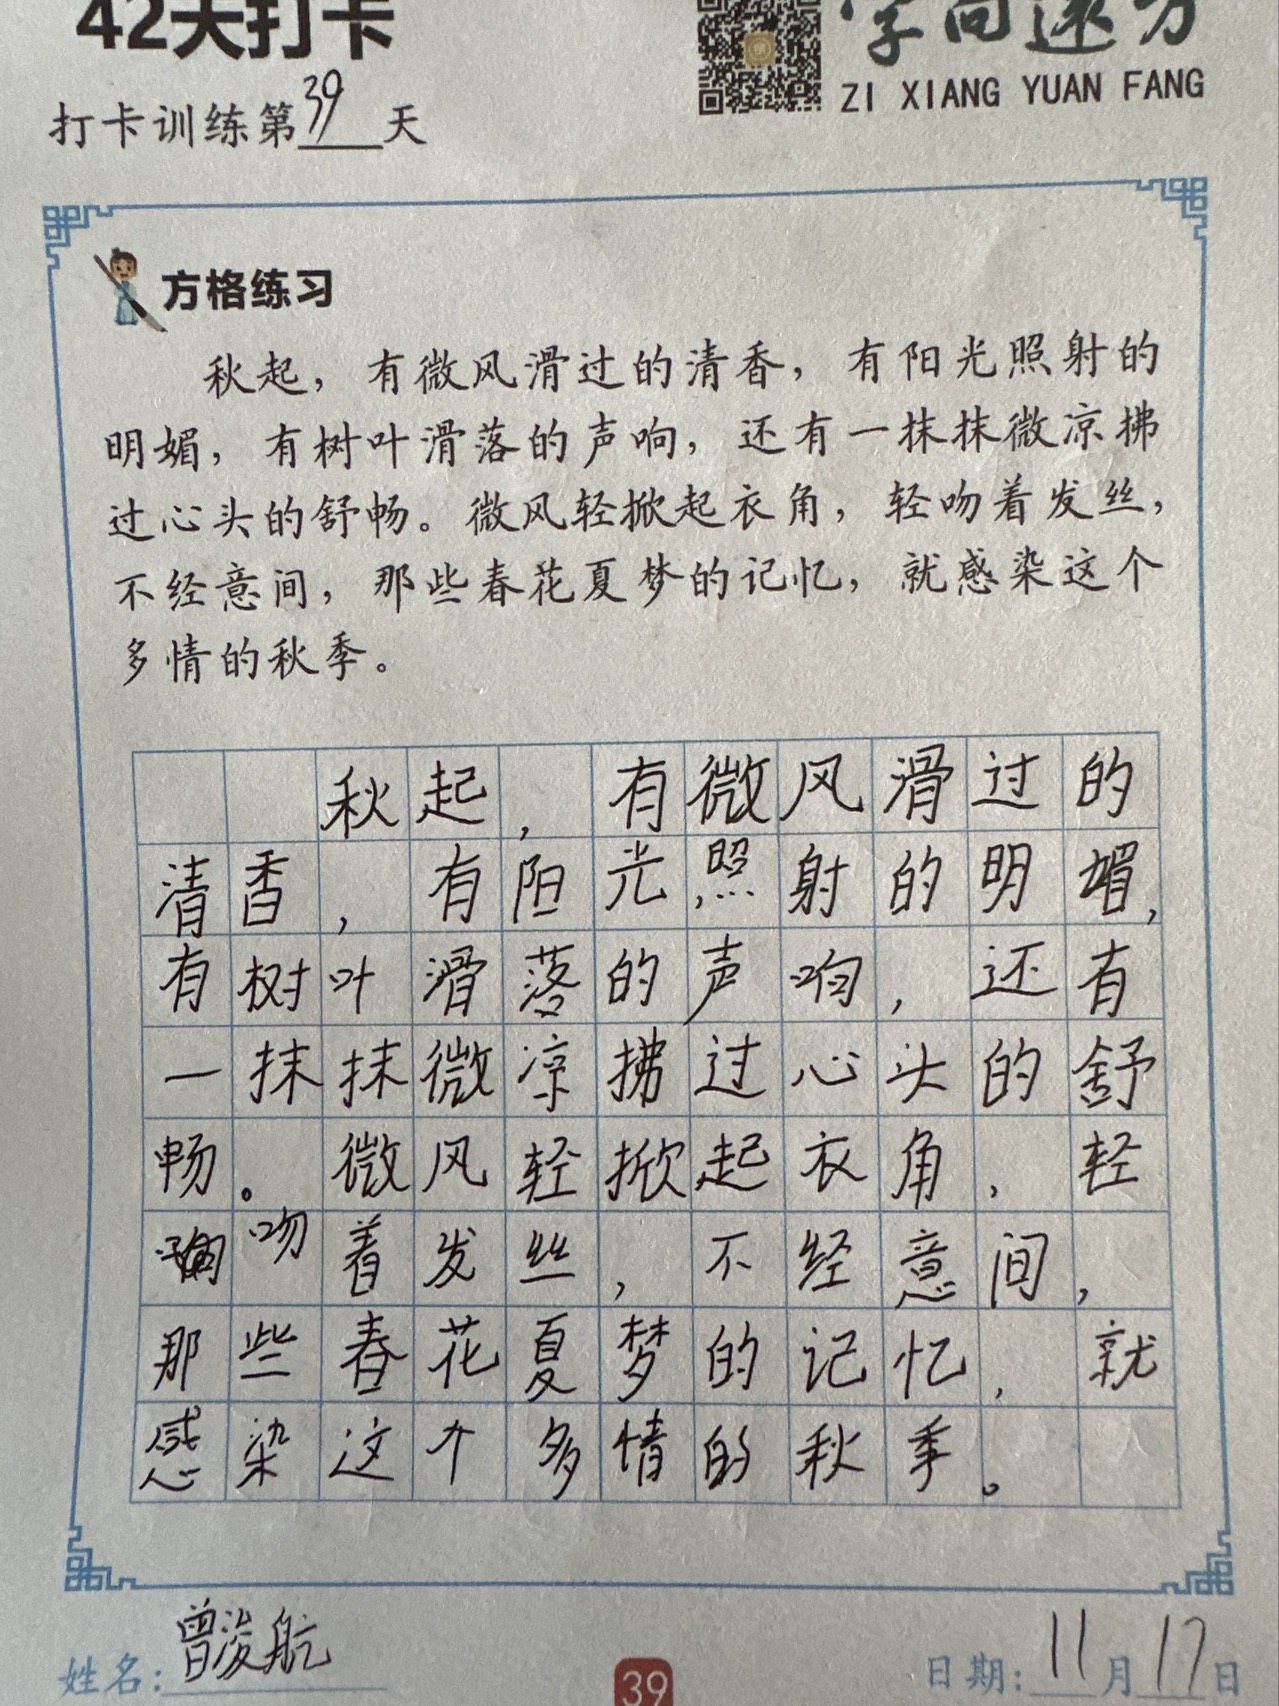 42天打卡
字向远方
ZI XIANG YUAN FANG
打卡训练第39天
方格练习
秋起，有微风滑过的清香，有阳光照射的
明媚，有树叶滑落的声响，还有一抹抹微凉拂
过心头的舒畅。微风轻掀起衣角，轻吻着发丝，
不经意间，那些春花夏梦的记忆，就感染这个
多情的秋季。
秋起，有微风滑过的
清香，有阳光照射的明媚，
有树叶滑落的声响，还有
一抹抹微凉拂过心头的舒
畅。微风轻掀起衣角，轻
吻着发丝，不经意间，
那些春花夏梦的记忆，就
感染这个多情的秋季。
姓名：曾浚航
39
日期：11月17日